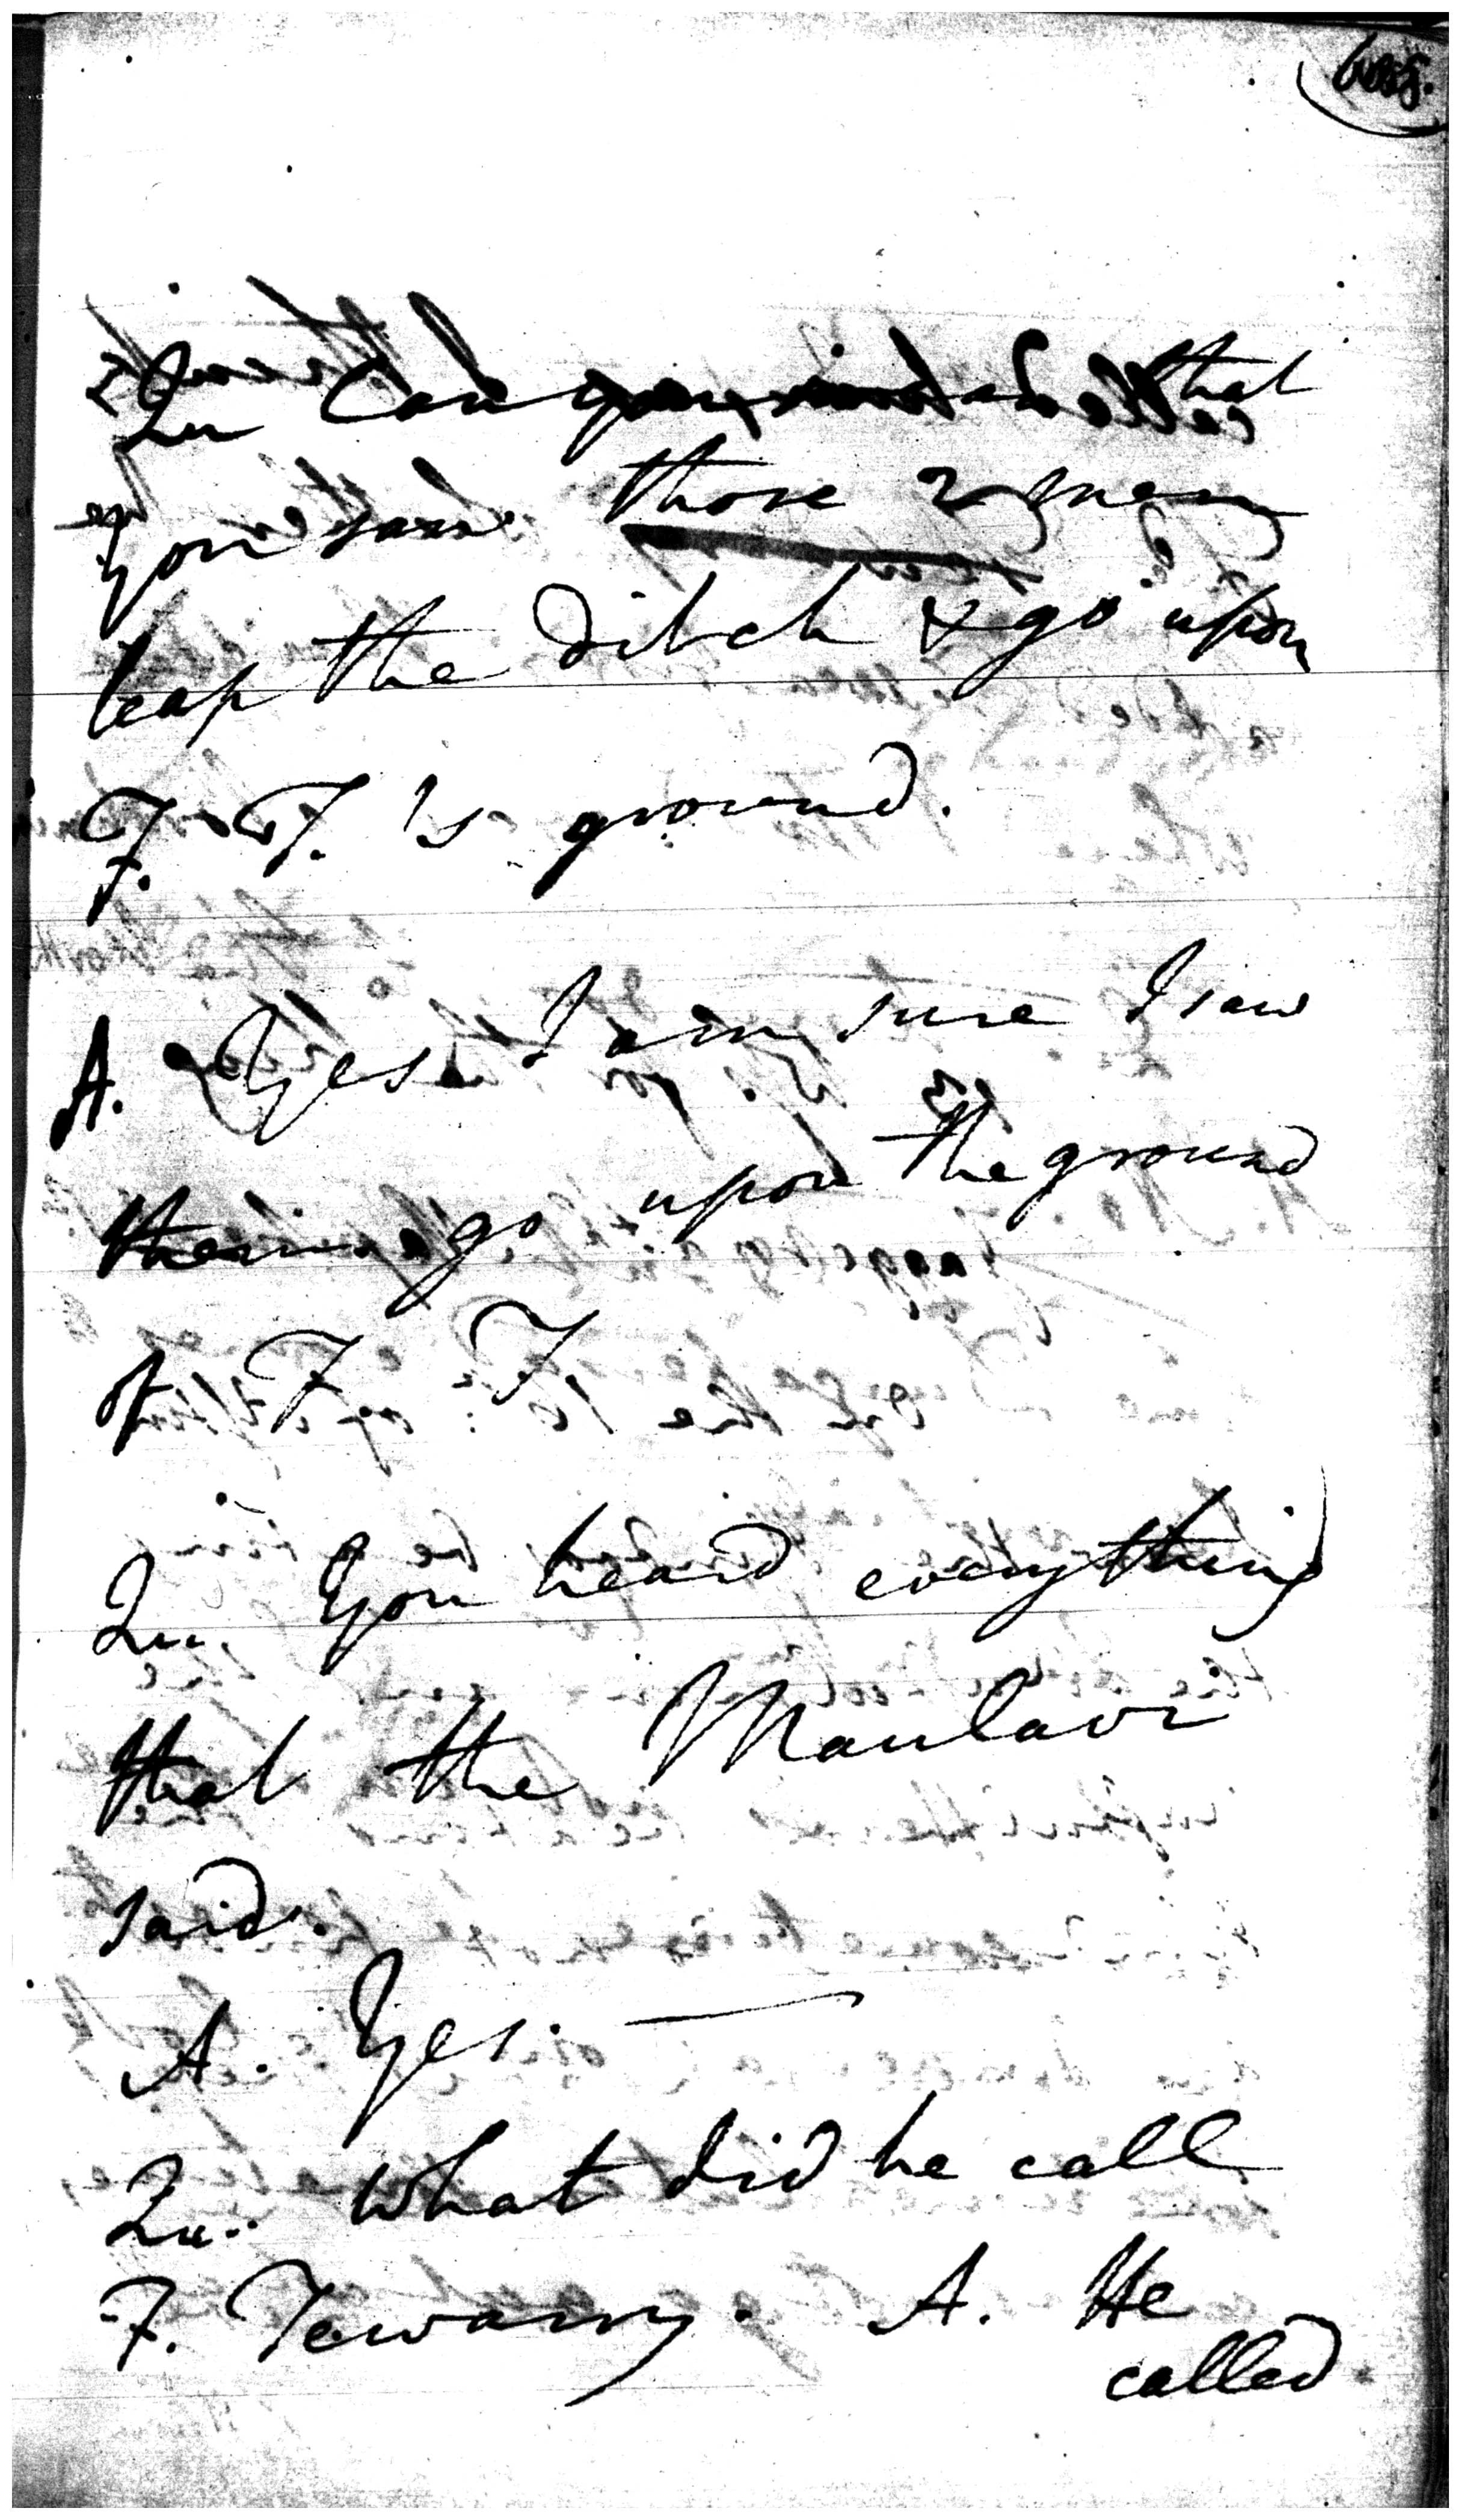 Qu Can you that
you saw those 2 men
leap the ditch & go upon
F. T.'s ground.
A. Yes. I am sure I saw
them go upon the ground
of F. T.
Qu. You heard everything
that the Maulavi
said.
A. Yes. —
Qu.. What did he call
F. Tewarry. A. He
called